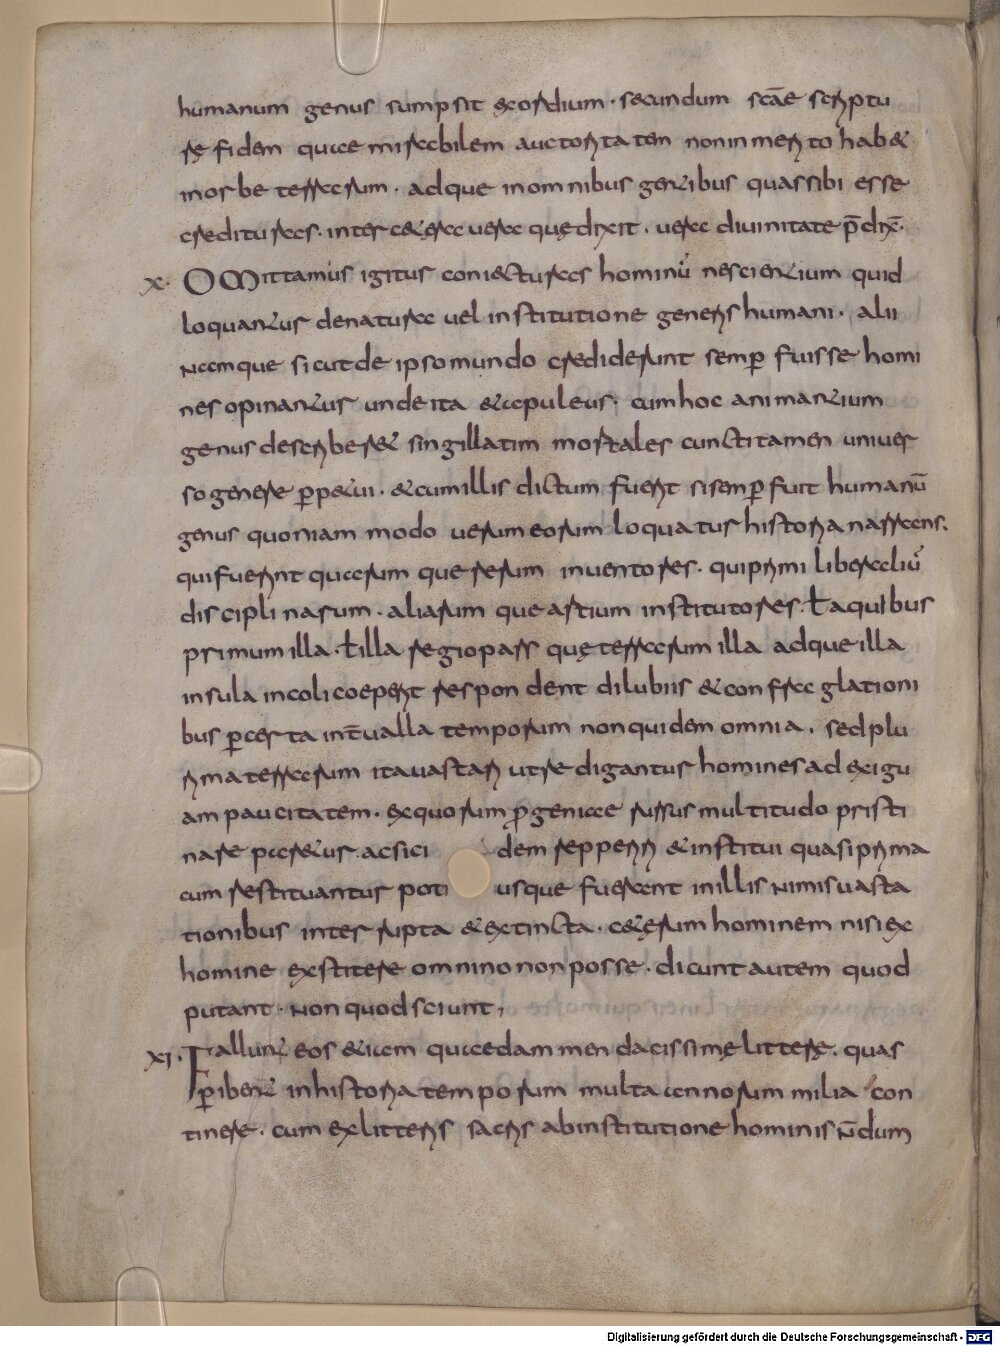 humanum genus sumpsit exordium · secundum scāe scriptu
rę fidem quae mirabilem auctoritatem non inmerito habet
in orbe terrarum · adque in omnibus gentibus quas sibi esse
credituras · inter cetera uera quę dixit · uera diuinitate p̄dix̄ ·
x · OMittamus igitur coniecturas hominū nescientium quid
loquantur de natura uel institutione generis humani · alii
namque sicut de ipso mundo crediderunt semp̄ fuisse homi
nes opinantur unde ita et apuleus · cum hoc animantium
genus describeret singillatim mortales cuncti tamen uniuer
so genere p̄petui · et cum illis dictum fuerit si semp̄ fuit humanū
genus quoniam modo uerum eorum loquatur historia narrans ·
qui fuerint quarum que rerum inuentores · qui primi liberaliū
disciplinarum · aliarum que artium institutores · ƚ a quibus
primum illa · ƚ illa regio pars quę terrarum illa adque illa
insula incoli coeperit respondent dilubiis et conflaglationi
bus p̄ certa int̄ualla temporum non quidem omnia · sed plu
rima terrarum ita uastari ut redigantur homines ad exigu
am paucitatem · ex quorum p̄genie rursus multitudo pristi
nare paretur · ac sic i dem repperiri et institui quasi prima
cum restituantur poti usque fuerant in illis nimis uasta
tionibus inter rupta et extincta · ceterum hominem nisi ex
homine exsistere omnino non posse · dicunt autem quod
putant · non quod sciunt ;
xi · Fallunt eos etiam quaedam mendacissimę litterę · quas
p̄ibent in historia temporum multa annorum milia con
tinere · cum ex litteris sacris ab institutione hominis n̄dum
Digitalisierung gefördert durch die Deutsche Forschungsgemeinschaft - DFG